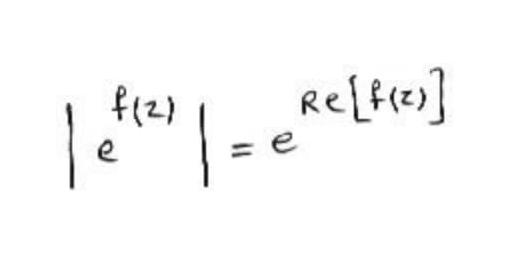 | e^{f(z)} | = e^{Re[f(z)]}